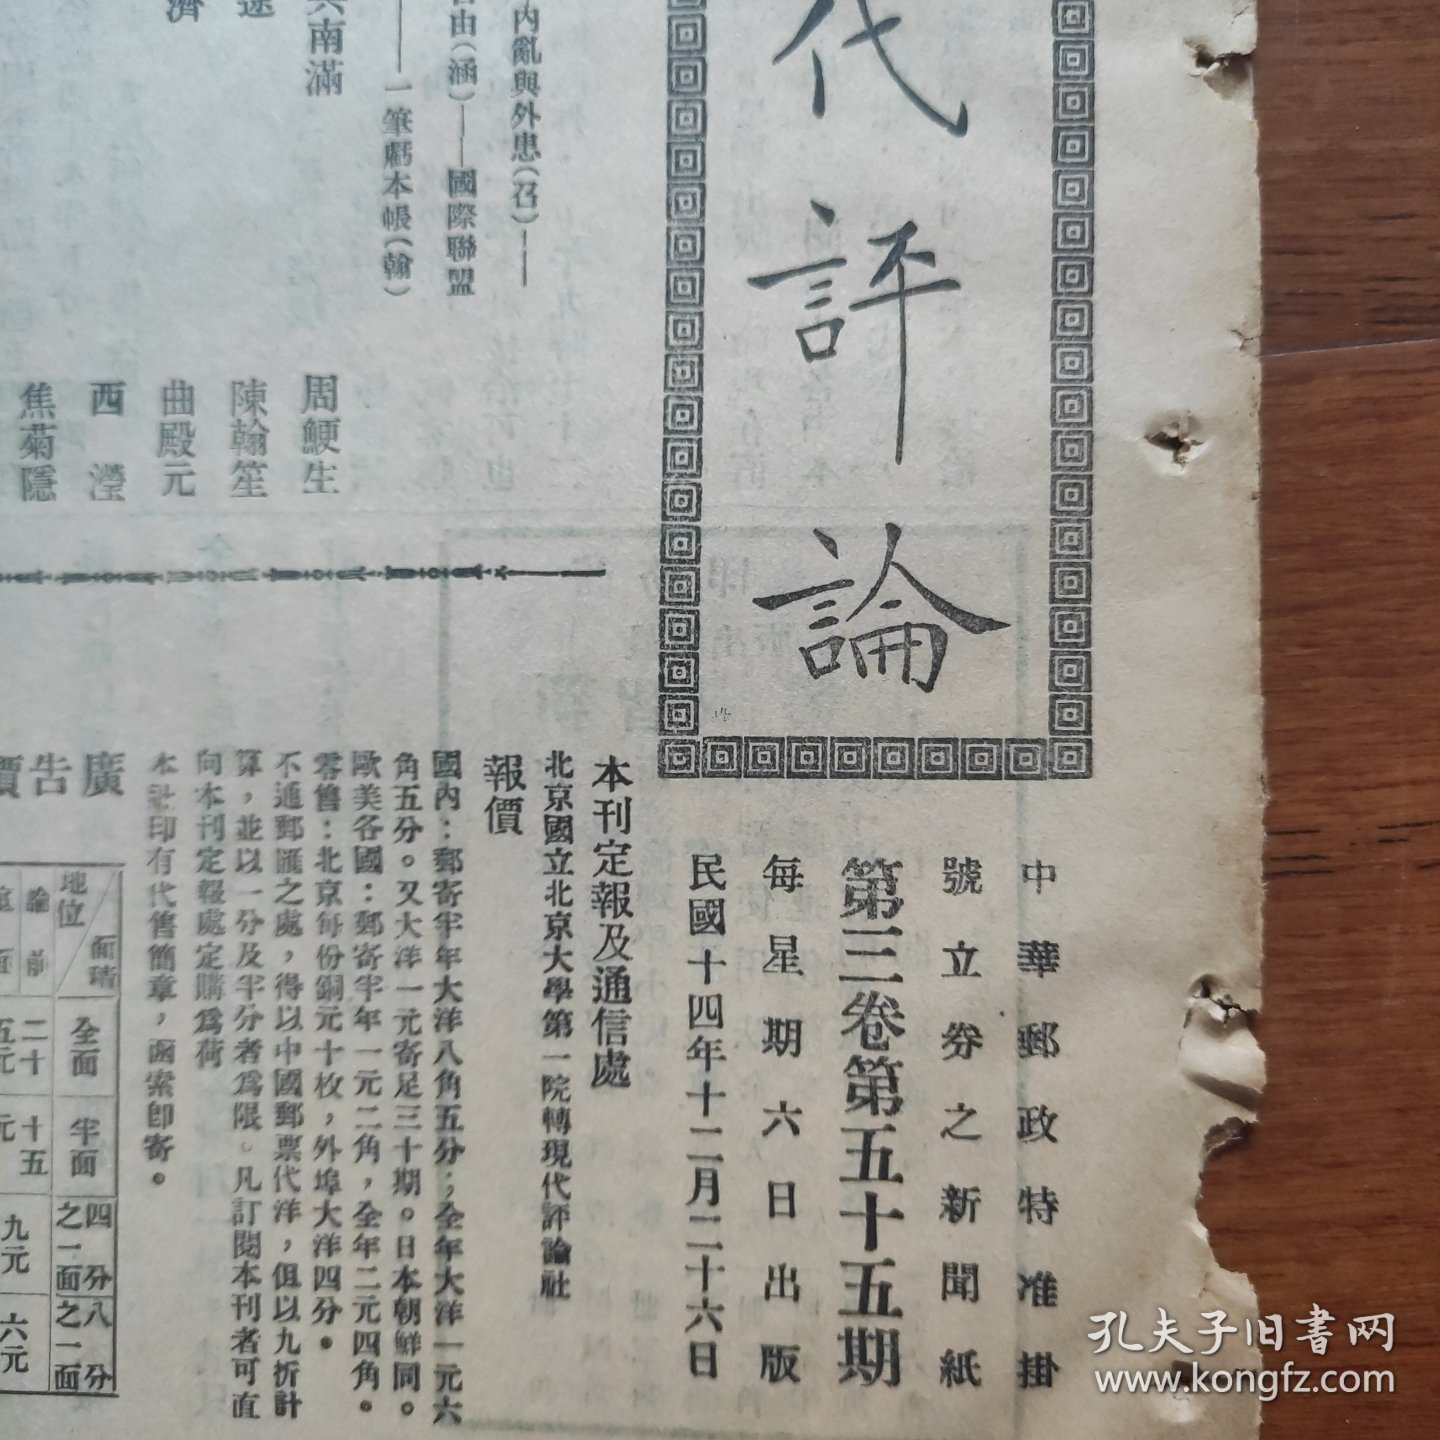 代評論
中華郵政特准掛
號立券之新聞紙
第三卷第五十五期
每星期六日出版
民國十四年十二月二十六日
本刊定報及通信處
北京國立北京大學第一院轉現代評論社
報價
國內：郵寄半年大洋八角五分；全年大洋一元六
角五分。又大洋一元寄足三十期。日本朝鮮同。
歐美各國：郵寄半年一元二角，全年二元四角。
零售：北京每份銅元十枚，外埠大洋四分。
不通郵匯之處，得以中國郵票代洋，但以九折計
算，並以一分及半分者爲限。凡訂閱本刊者可直
向本刊定報處定購爲荷
本社印有代售簡章，函索卽寄。
廣告價
內亂與外患（召）——
由（涵）——國際聯盟
——一筆虧本帳（翰）
南滿
濟
周鯁生
陳翰笙
曲殿元
西瀅
焦菊隱
地位 面積
全面
半面
四分之一面
八分之一面
論前
二十元
十五元
九元
六元
孔夫子旧书网
www.kongfz.com